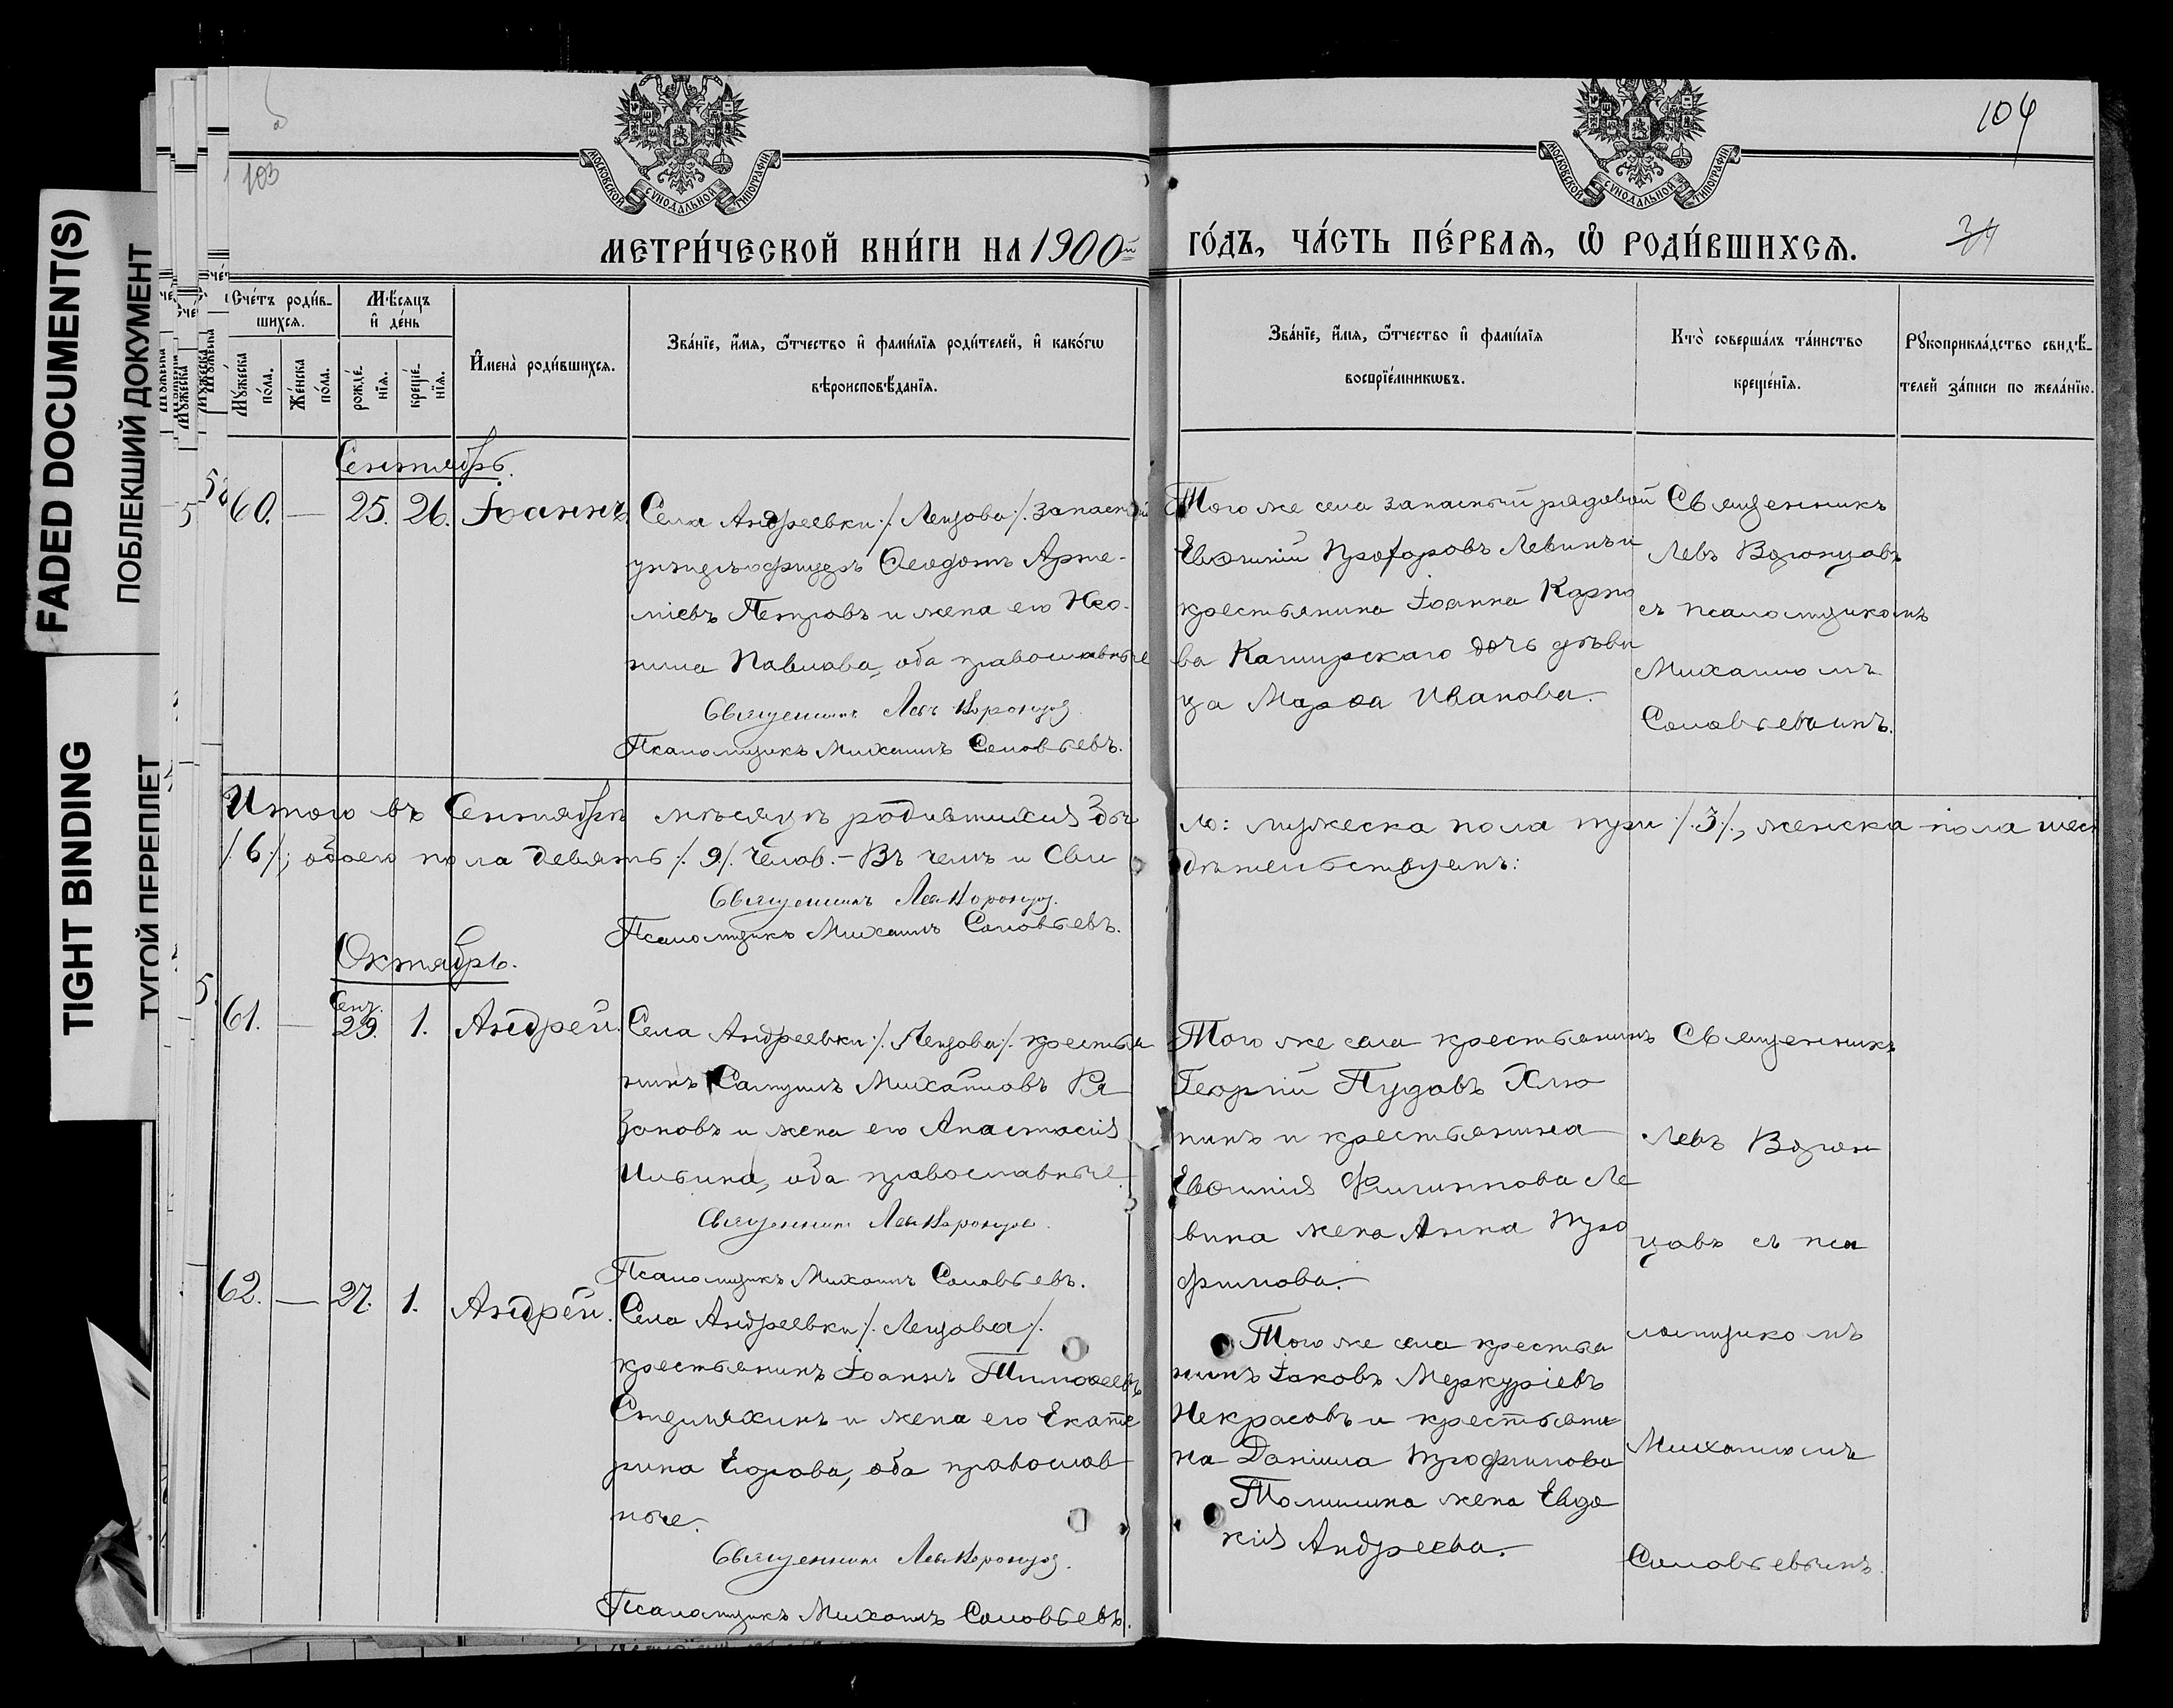 FADED DOCUMENT(S)
ПОБЛЕКШИЙ ДОКУМЕНТ
TIGHT BINDING
ТУГОЙ ПЕРЕПЛЕТ
103
104
34
МОСКОВСКОЙ СУНОДАЛЬНОЙ ТИПОГРАФІИ
МОСКОВСКОЙ СУНОДАЛЬНОЙ ТИПОГРАФІИ
МЕТРИ́ЧЕСКОЙ КНИ́ГИ НА 1900й ГО́ДЪ, ЧА́СТЬ ПЕ́РВАѦ, Ѡ҆ РОДИ́ВШИХСѦ.
Сче́тъ роди́в-
шихсѧ.
Мꙋ́жеска по́ла.
Же́нска по́ла.
Мѣ́сѧцъ
и҆ де́нь
рожде́-
нїѧ.
креще́-
нїѧ.
И҆мена̀ роди́вшихсѧ.
Зва́нїе, и҆́мѧ, ѻ҆́тчество и҆ фами́лїѧ роди́телей, и҆ како́гѡ
вѣроисповѣ́данїѧ.
Зва́нїе, и҆́мѧ, ѻ҆́тчество и҆ фами́лїѧ
воспрїе́мникѡвъ.
Кто̀ соверша́лъ та́инство
креще́нїѧ.
Рꙋкоприкла́дство свидѣ́-
телей за́писи по жела́нїю.
Сентябрь.
60. — 25. 26. Іоаннъ
Села Андреевки /. Лецова /. запасный
унтеръ-офицеръ Ѳеодотъ Арте-
міевъ Петровъ и жена его Нео-
нила Павлова, оба православные
Священникъ Левъ Воронцов
Псаломщикъ Михаилъ Соловьевъ.
Того же села запасный рядовой
Евѳимій Прохоровъ Левинъ и
крестьянина Іоанна Карпо
ва Каширскаго дочь дѣви
ца Марѳа Иванова.
Священникъ
Левъ Воронцовъ
съ псаломщикомъ
Михаиломъ
Соловьевымъ.
Итого въ Сентябрѣ мѣсяцѣ родившихся бы
ло: мужеска пола три /. 3 /., женска пола шес
/. 6 /.; обоего пола девять /. 9 /. челов. — Въ чемъ и сви
дѣтельствуемъ:
Священникъ Левъ Воронцов.
Псаломщикъ Михаилъ Соловьевъ.
Октябрь.
61. — Сент. 29. 1. Андрей.
Села Андреевки /. Лецова /. крестья
нинъ Самуилъ Михайловъ Ря
зановъ и жена его Анастасія
Ильина, оба православные
Священникъ Левъ Воронцов.
Псаломщикъ Михаилъ Соловьевъ.
Того же села крестьянинъ
Георгій Пудовъ Хлю
пинъ и крестьянина
Евѳимія Филиппова Ле
вина жена Анна Тро
фимова.
Священникъ
Левъ Ворон
цовъ съ пса
ломщикомъ
Михаиломъ
Соловьевымъ.
62. — 27. 1. Андрей.
Села Андреевки /. Лецова /.
крестьянинъ Іоаннъ Тимоѳеевъ
и жена его Екате
рина Егорова, оба православ
ные.
Священникъ Левъ Воронцов.
Псаломщикъ Михаилъ Соловьевъ.
Того же села крестья
нинъ Іаковъ Меркуріевъ
Некрасовъ и крестьяни
на Даніила Трофимова
Томилина жена Евдо
кія Андреева.